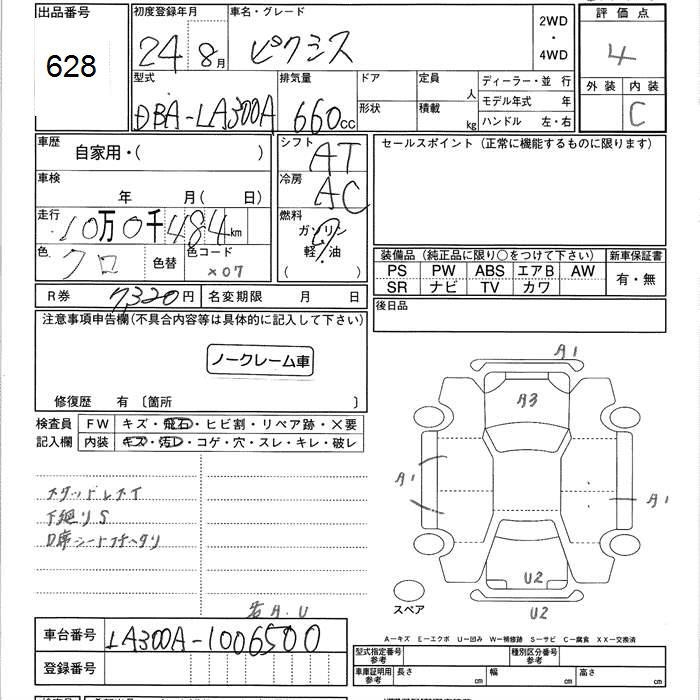 出品番号
628
初度登録年月
24 8月
車名・グレード
ピクシス
2WD
・
4WD
評価点
4
外装 内装
C
型式
DBA-LA300A
排気量
660cc
ドア
形状
定員 人
積載 kg
ディーラー・並 行
モデル年式 年
ハンドル 左・右
車歴
自家用・( )
車検
年 月( 日)
走行
10万0千484km
色
クロ
色替
色コード
X07
シフト
AT
冷房
AC
燃料
ガソリン
軽・油
( )
セールスポイント (正常に機能するものに限ります)
装備品 (純正品に限り○をつけて下さい) 新車保証書
PS PW ABS エアB AW
SR ナビ TV カワ
有・無
R券 7320円 名変期限 月 日
後日品
注意事項申告欄(不具合内容等は具体的に記入して下さい)
ノークレーム車
修復歴 有 〔箇所 〕
検査員
記入欄
FW キズ・飛石・ヒビ割・リペア跡・×要
内装 キズ・汚レ・コゲ・穴・スレ・キレ・破レ
スタッドレスイ
下廻りS
D席シート
若A.U
A1
A3
A1
A1
U2
U2
スペア
A―キズ E―エクボ U―凹み W―補修跡 S―サビ C―腐食 XX―交換済
車台番号 LA300A-1006500
登録番号
型式指定番号
参考
種別区分番号
参考
車庫証明用
参考
長さ cm 幅 cm 高さ cm